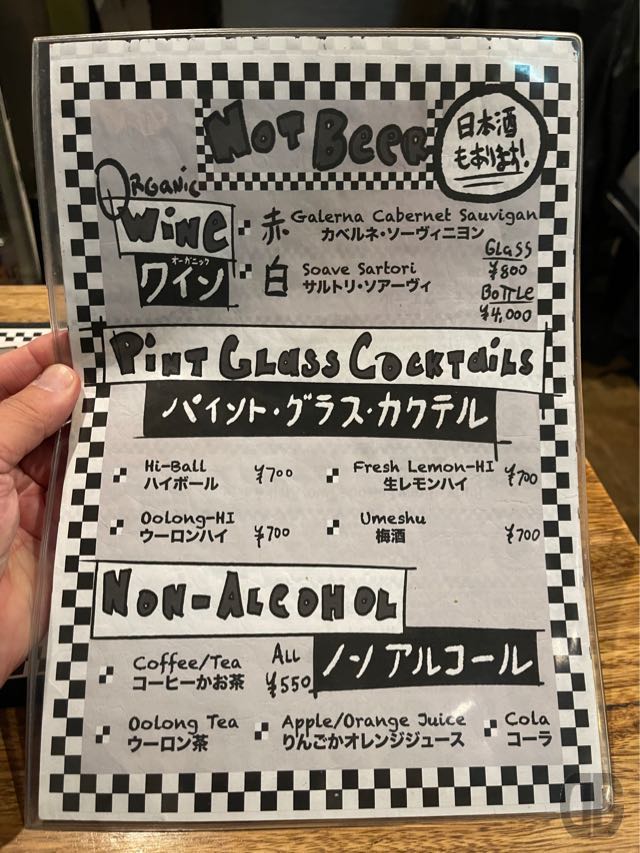 NOT BEER
日本酒
もあります!
ORGANIC
WINE
オーガニック
ワイン
赤 Galerna Cabernet Sauvigan
カベルネ・ソーヴィニヨン
白 Soave Sartori
サルトリ・ソアーヴィ
GLASS
¥800
BOTTLE
¥4,000
PINT GLASS COCKTAILS
パイント・グラス・カクテル
Hi-Ball ¥700
ハイボール
Fresh Lemon-HI ¥700
生レモンハイ
Oolong-HI ¥700
ウーロンハイ
Umeshu ¥700
梅酒
NON-ALCOHOL
ノンアルコール
Coffee/Tea
コーヒーかお茶
ALL
¥550
Oolong Tea
ウーロン茶
Apple/Orange Juice
りんごかオレンジジュース
Cola
コーラ